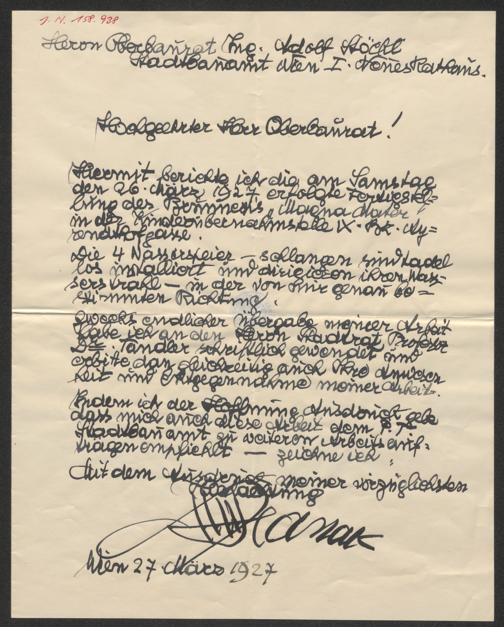 J.N. 158.938
Herrn Oberbaurat Ing. Adolf Stöckl
Stadtbauamt Wien I. Neues Rathaus.
Hochgeehrter Herr Oberbaurat!
Hiermit berichte ich die am Samstag
den 26. März 1927 erfolgte Fertigstel-
lung des Brunnens „Magna Mater"
in der Kinderübernahmsstelle IX. Ay-
renhofgasse.
Die 4 Wasserspeier-schlangen sind tadel
los installiert und dirigieren ihren Was-
serstrahl — in der von mir genau be=
stimmten Richtung.
Zwecks endlicher Übergabe meiner Arbeit
habe ich an den Herrn Stadtrat, Professor
Dr. Tandler schriftlich gewendet und
erbitte dan gleichzeitig auch Ihre Anwesen
heit und Entgegennahme meiner Arbeit.
Indem ich der Hoffnung Ausdruck gebe
dass mich auch diese Arbeit dem
Stadtbauamt zu weiteren Arbeitsauf-
trägen empfiehlt — zeichne ich
Mit dem Ausdruck meiner vorzüglichsten
Hochachtung
Hanak
Wien 27 März 1927